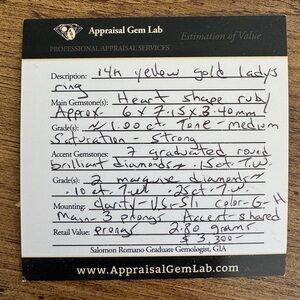 Appraisal Gem Lab
Estimation of Value
PROFESSIONAL APPRAISAL SERVICES
Description: 14k yellow gold ladys
ring
Main Gemstone(s): Heart shape ruby
Approx. 6 x 7.15 x 3.40mm
Grade(s): ~ 1.00 ct. Tone - medium
Saturation - Strong
Accent Gemstones: 7 graduated round
brilliant diamonds ~ .15ct T.W.
Grade(s): 2 marquise diamonds ~
.10 ct. T.W .25ct T.W.
Mounting: clarity - VS-SI1 color - G-H
Main - 3 prongs Accent - shared
Retail Value: prongs 2.80 grams
$ 3,300-
Salomon Romano Graduate Gemologist, GIA
www.AppraisalGemLab.com